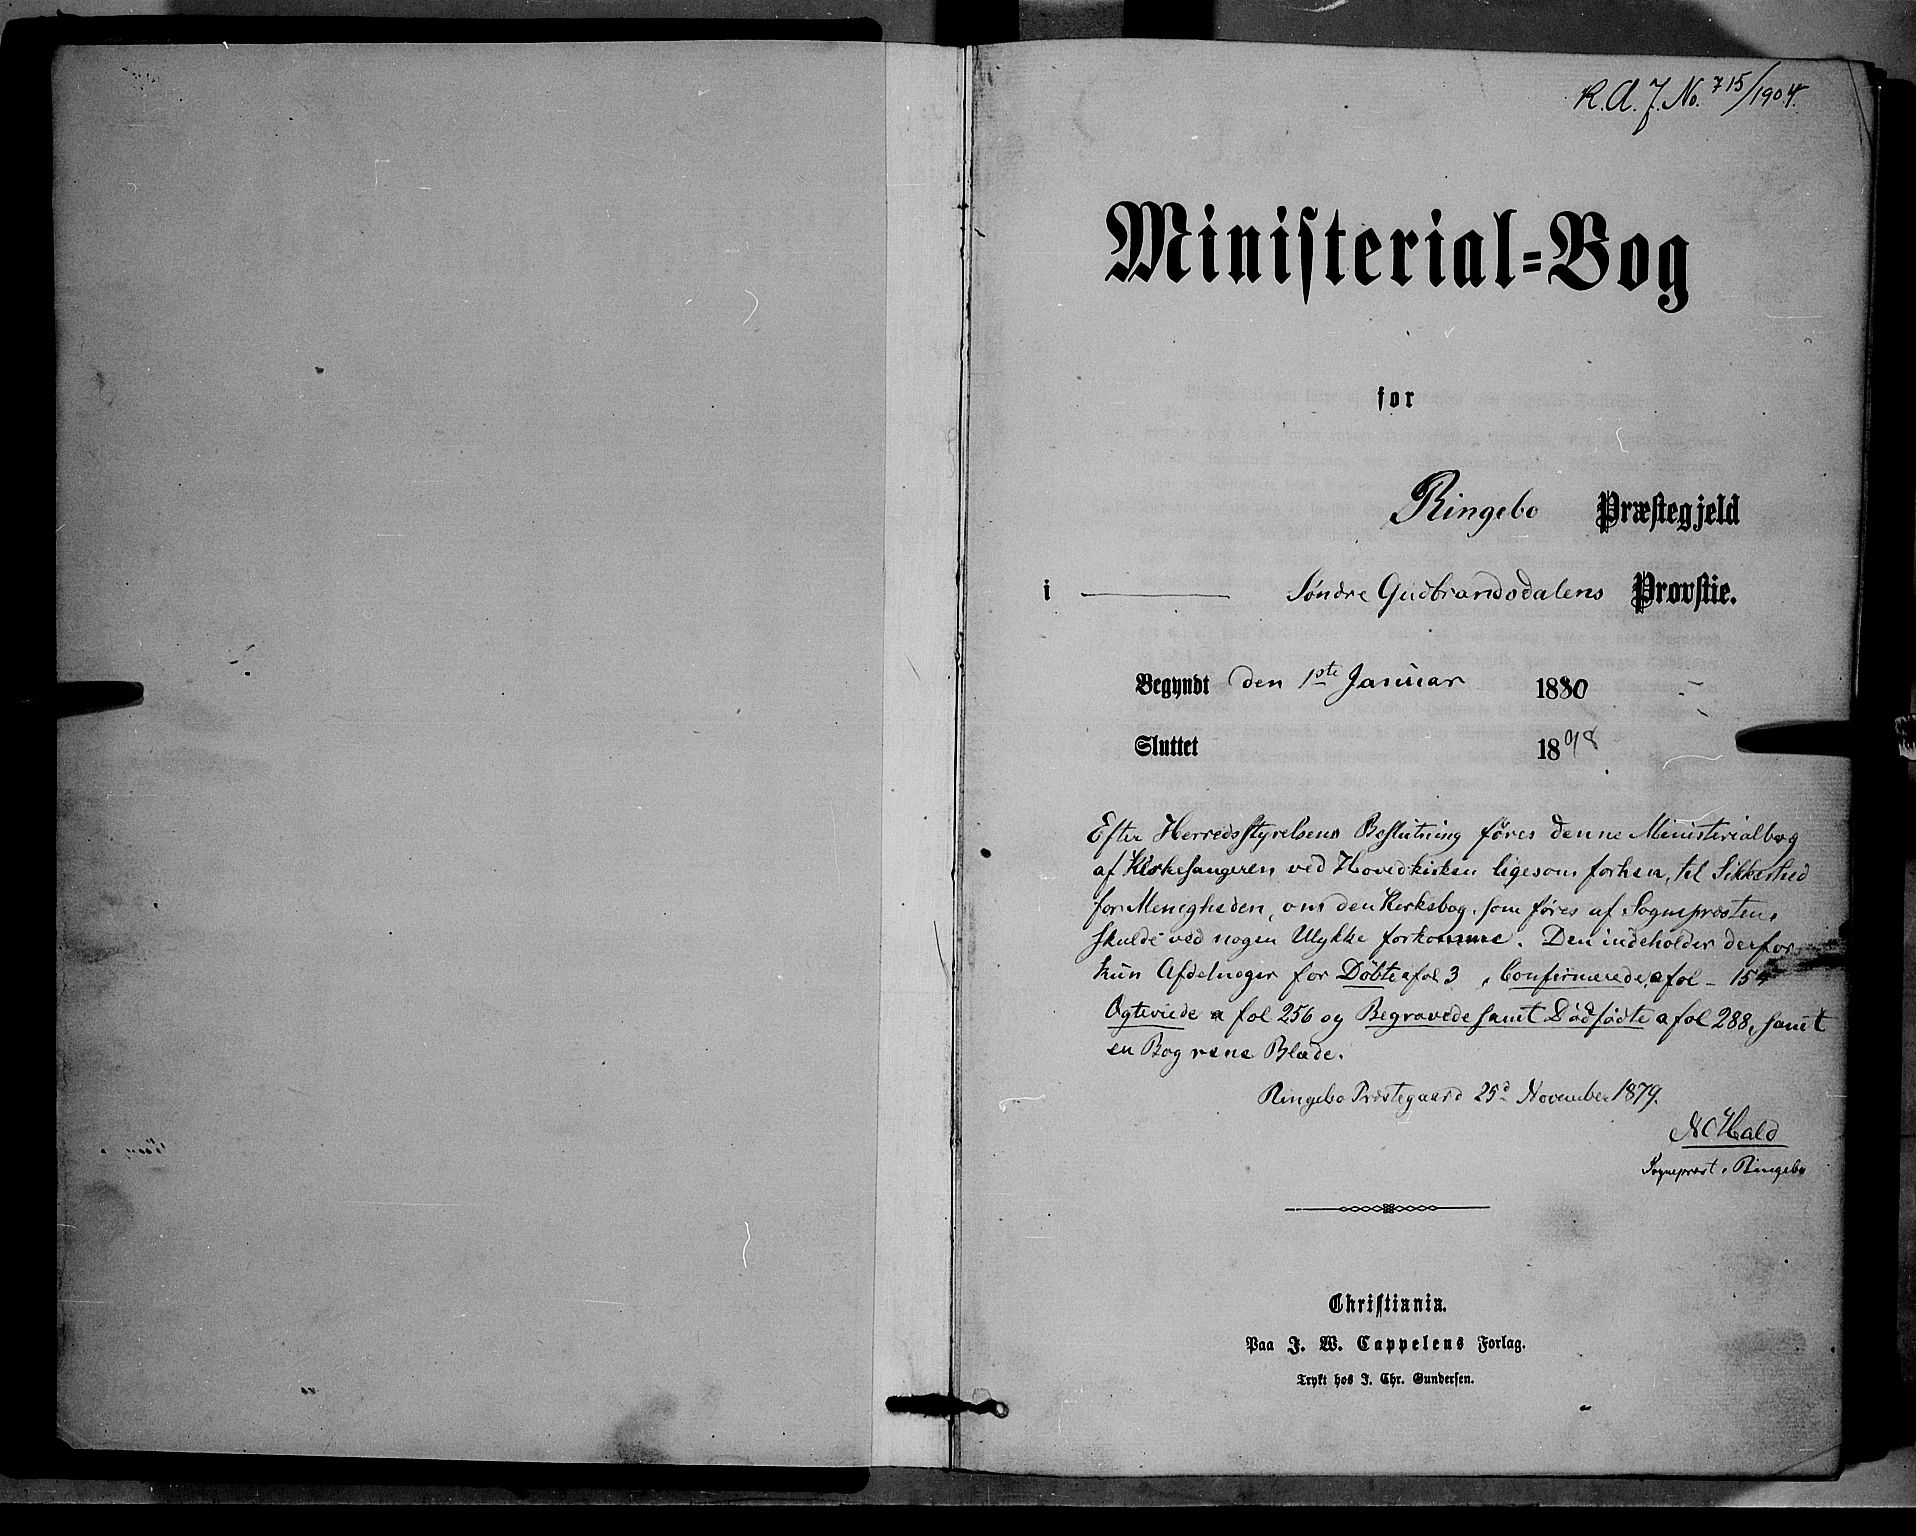 R. A. J. No. 715/1904.
Ministerial=Bog
for
Ringebo Præstegjeld
i Søndre Gudbrandsdalens Provstie.
Begyndt den 1ste Januar 1880
Sluttet 1898
Efter Herredsstyrelsens Beslutning føres denne Ministerialbog
af Kirkesangeren ved Hovedkirken ligesom forhen, til Sikkerhed
for Menigheden, om den Kirkebog, som føres af Sognepræsten,
skulde ved nogen Ulykke forkomme. Den indeholder derfor
kun Afdelinger for Døbte a fol 3, Confirmerede, a fol - 154
Ogteviede a fol 256 og Begravede samt Dødfødte a fol 288, samt
en Bog rene Blade.
Ringebo Præstegaard 25d November 1879.
N C Hald
Sognepræst i Ringebo
Christiania.
Paa J. W. Cappelens Forlag.
Trykt hos J. Chr. Gundersen.